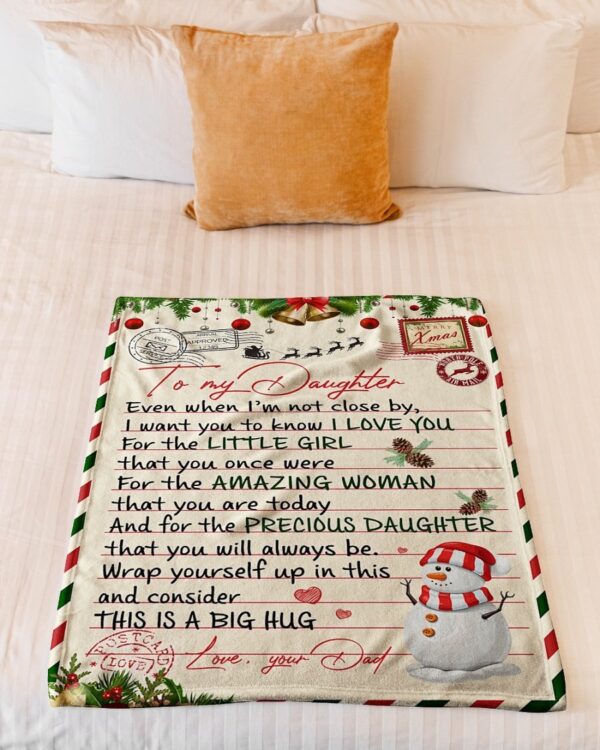 MERRY
Xmas
To my Daughter
Even when I'm not close by,
I want you to know I LOVE YOU
For the LITTLE GIRL
that you once were
For the AMAZING WOMAN
that you are today
And for the PRECIOUS DAUGHTER
that you will always be.
Wrap yourself up in this
and consider
THIS IS A BIG HUG
POSTCARD
LOVE
Love, your Dad